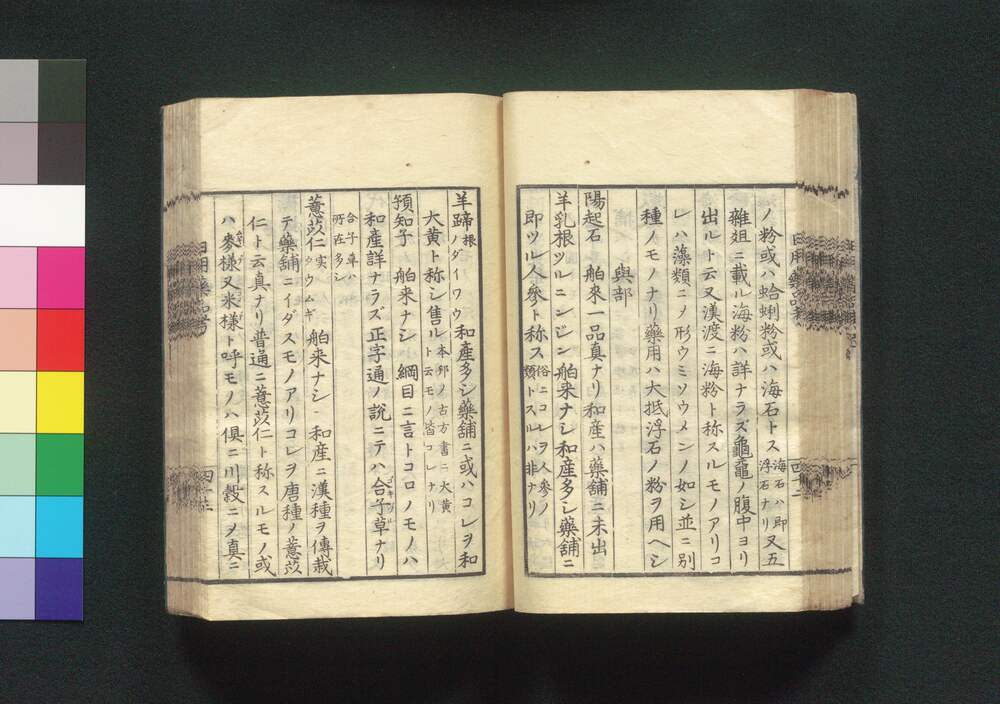 ノ粉或ハ蛤蜊粉或ハ海石トス海石ハ即浮石ナリ又五
雜俎ニ載ル海粉ハ詳ナラズ龜鼊ノ腹中ヨリ
出ルト云又漢渡ニ海粉ト称スルモノアリコ
レハ藻類ニメ形ウミソウメンノ如シ並ニ別
種ノモノナリ藥用ハ大抵浮石ノ粉ヲ用ヘシ
與部
陽起石 舶來一品真ナリ和産ハ藥舗ニ未出
羊乳根ツルニンジン舶來ナシ和産多シ藥舗ニ
即ツル人參ト称ス俗ニコレヲ人參ノ類トスルハ非ナリ
羊蹄根ノダイワウ和産多シ藥舗ニ或ハコレヲ和
大黄ト称シ售ル本邦ノ古方書ニ大黄ト云モノ皆コレナリ
預知子 舶来ナシ 綱目ニ言トコロノモノハ
和産詳ナラズ正字通ノ説ニテハ合子草ナリ
合子草ハ所在多シ
薏苡仁実クウムギ 舶来ナシ 和産ニ漢種ヲ傳栽
テ藥舗ニイダスモノアリコレヲ唐種ノ薏苡
仁ト云真ナリ普通ニ薏苡仁ト称スルモノ或
ハ麥様又米様ト呼モノハ倶ニ川穀ニメ真ニ
日用藥品考
四十二
日用藥品考